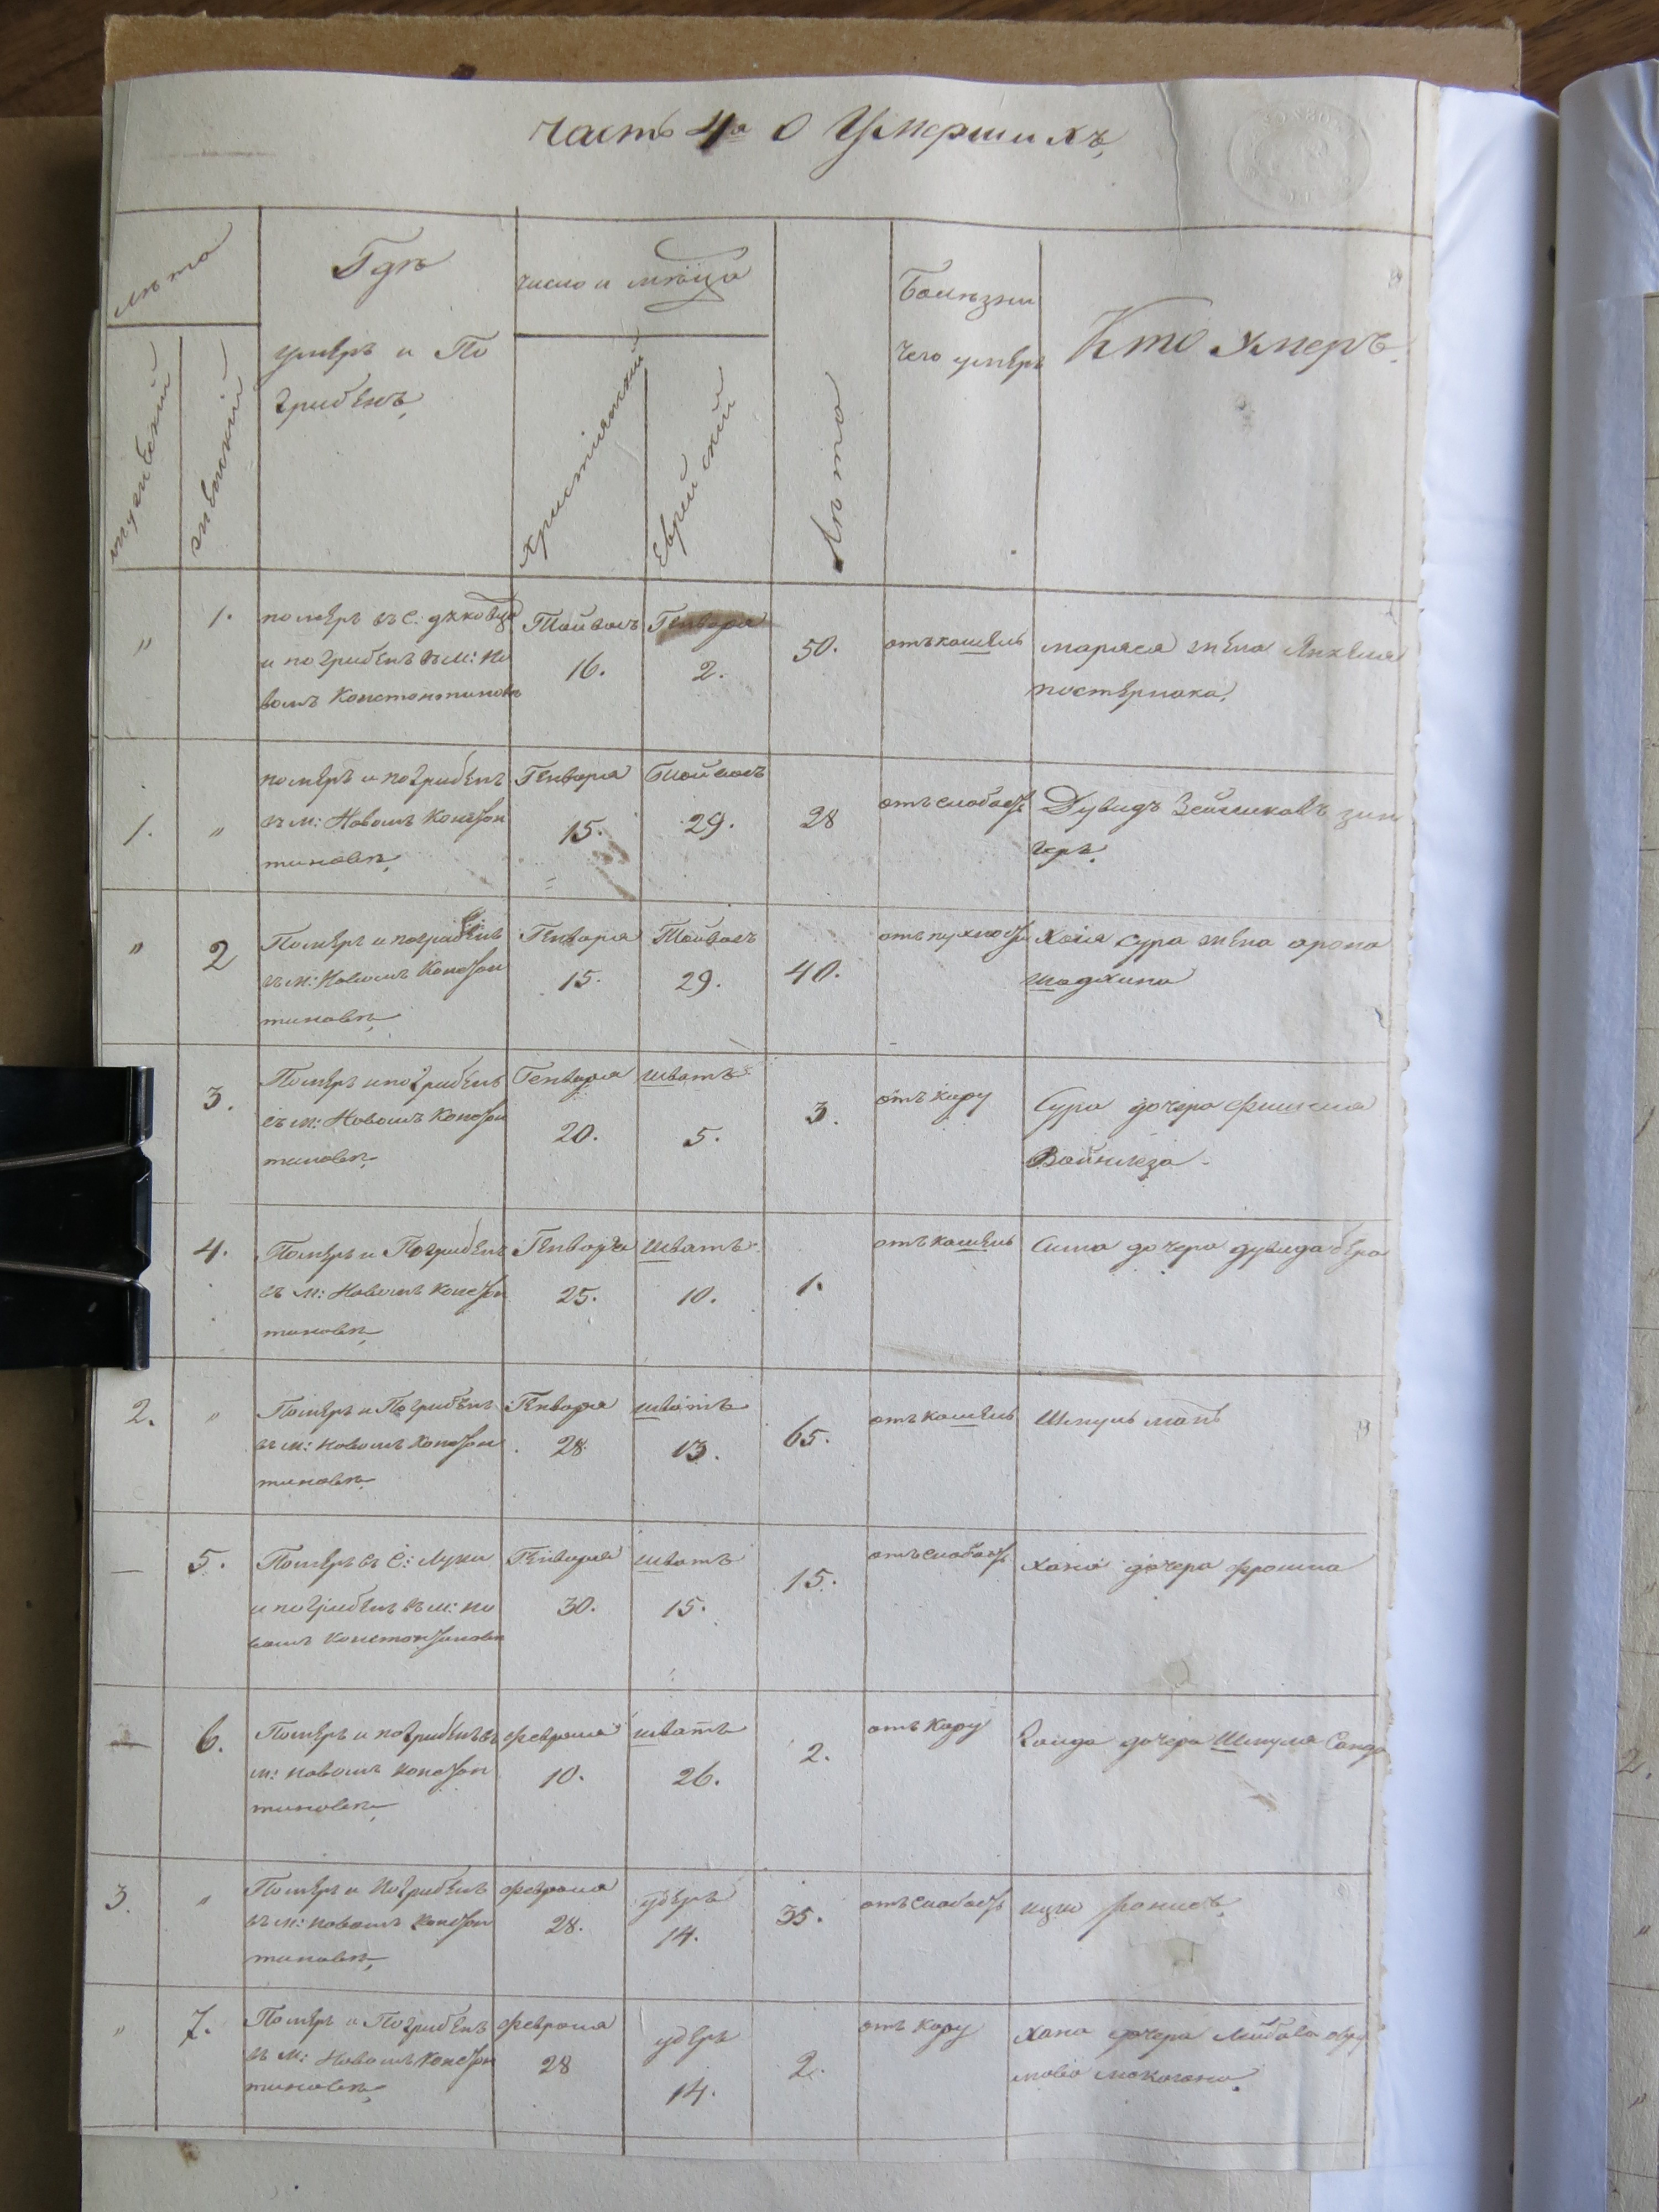 часть 4я о Умершихъ
лѣта
Гдѣ
число и мѣсяца
Болѣзни
умѣръ и По
чего умѣръ
Кто умеръ
грибѣнъ
мужескій
женскій
христіянскій
Еврейский
Лѣта
" 1. помѣръ въ с:
и погрибѣнъ въ м: Но
вомъ Константиновѣ
Тайвасъ
16.
Генваря
2.
50.
отъ кашель
маряся жѣна Янкеля
постѣрнака
1. " помѣръ и погрибѣнъ
въ м: Новомъ Констан
тиновѣ
Генваря
15.
Тайвасъ
29.
28
отъ слабость
Дувидъ Зейликовъ зин
геръ.
" 2 Помѣръ и погрибѣнъ
въ м: Новомъ Констан
тиновѣ
Генваря
15.
Тайвасъ
29.
40.
отъ
Хая Сура жѣна арона
шадхина
3. Помѣръ и погрибѣнъ
въ м: Новомъ Констан
тиновѣ
Генваря
20.
шватъ
5.
3.
отъ кору
Сура дочера фишеля
4. Помѣръ и Погрибѣнъ
въ м: Новомъ Констан
тиновѣ
Генваря
25.
шватъ
10.
1.
отъ кашель
дочера дувида бѣра
2. " Помѣръ и Погрибѣнъ
въ м: Новомъ Констан
тиновѣ
Генваря
28
шватъ
13.
65.
отъ кашель
Шмуль
— 5. Помѣръ въ С: Луки
и погрибѣнъ въ м: Но
вомъ Константиновѣ
Генваря
30.
шватъ
15.
15.
отъ слабость
хана дочера фроима
— 6. Помѣръ и погрибѣнъ въ
м: Новомъ Констан
тиновѣ
февраля
10.
шватъ
26.
2.
отъ кору
дочера Шмуля
3. " Помѣръ и Погрибѣнъ
въ м: Новомъ Констан
тиновѣ
февраля
28.
удѣръ
14.
35.
отъ слабость
" 7. Помѣръ и Погрибѣнъ
въ м: Новомъ Констан
тиновѣ
февраля
28
удѣръ
14.
2.
отъ кору
Хана дочера